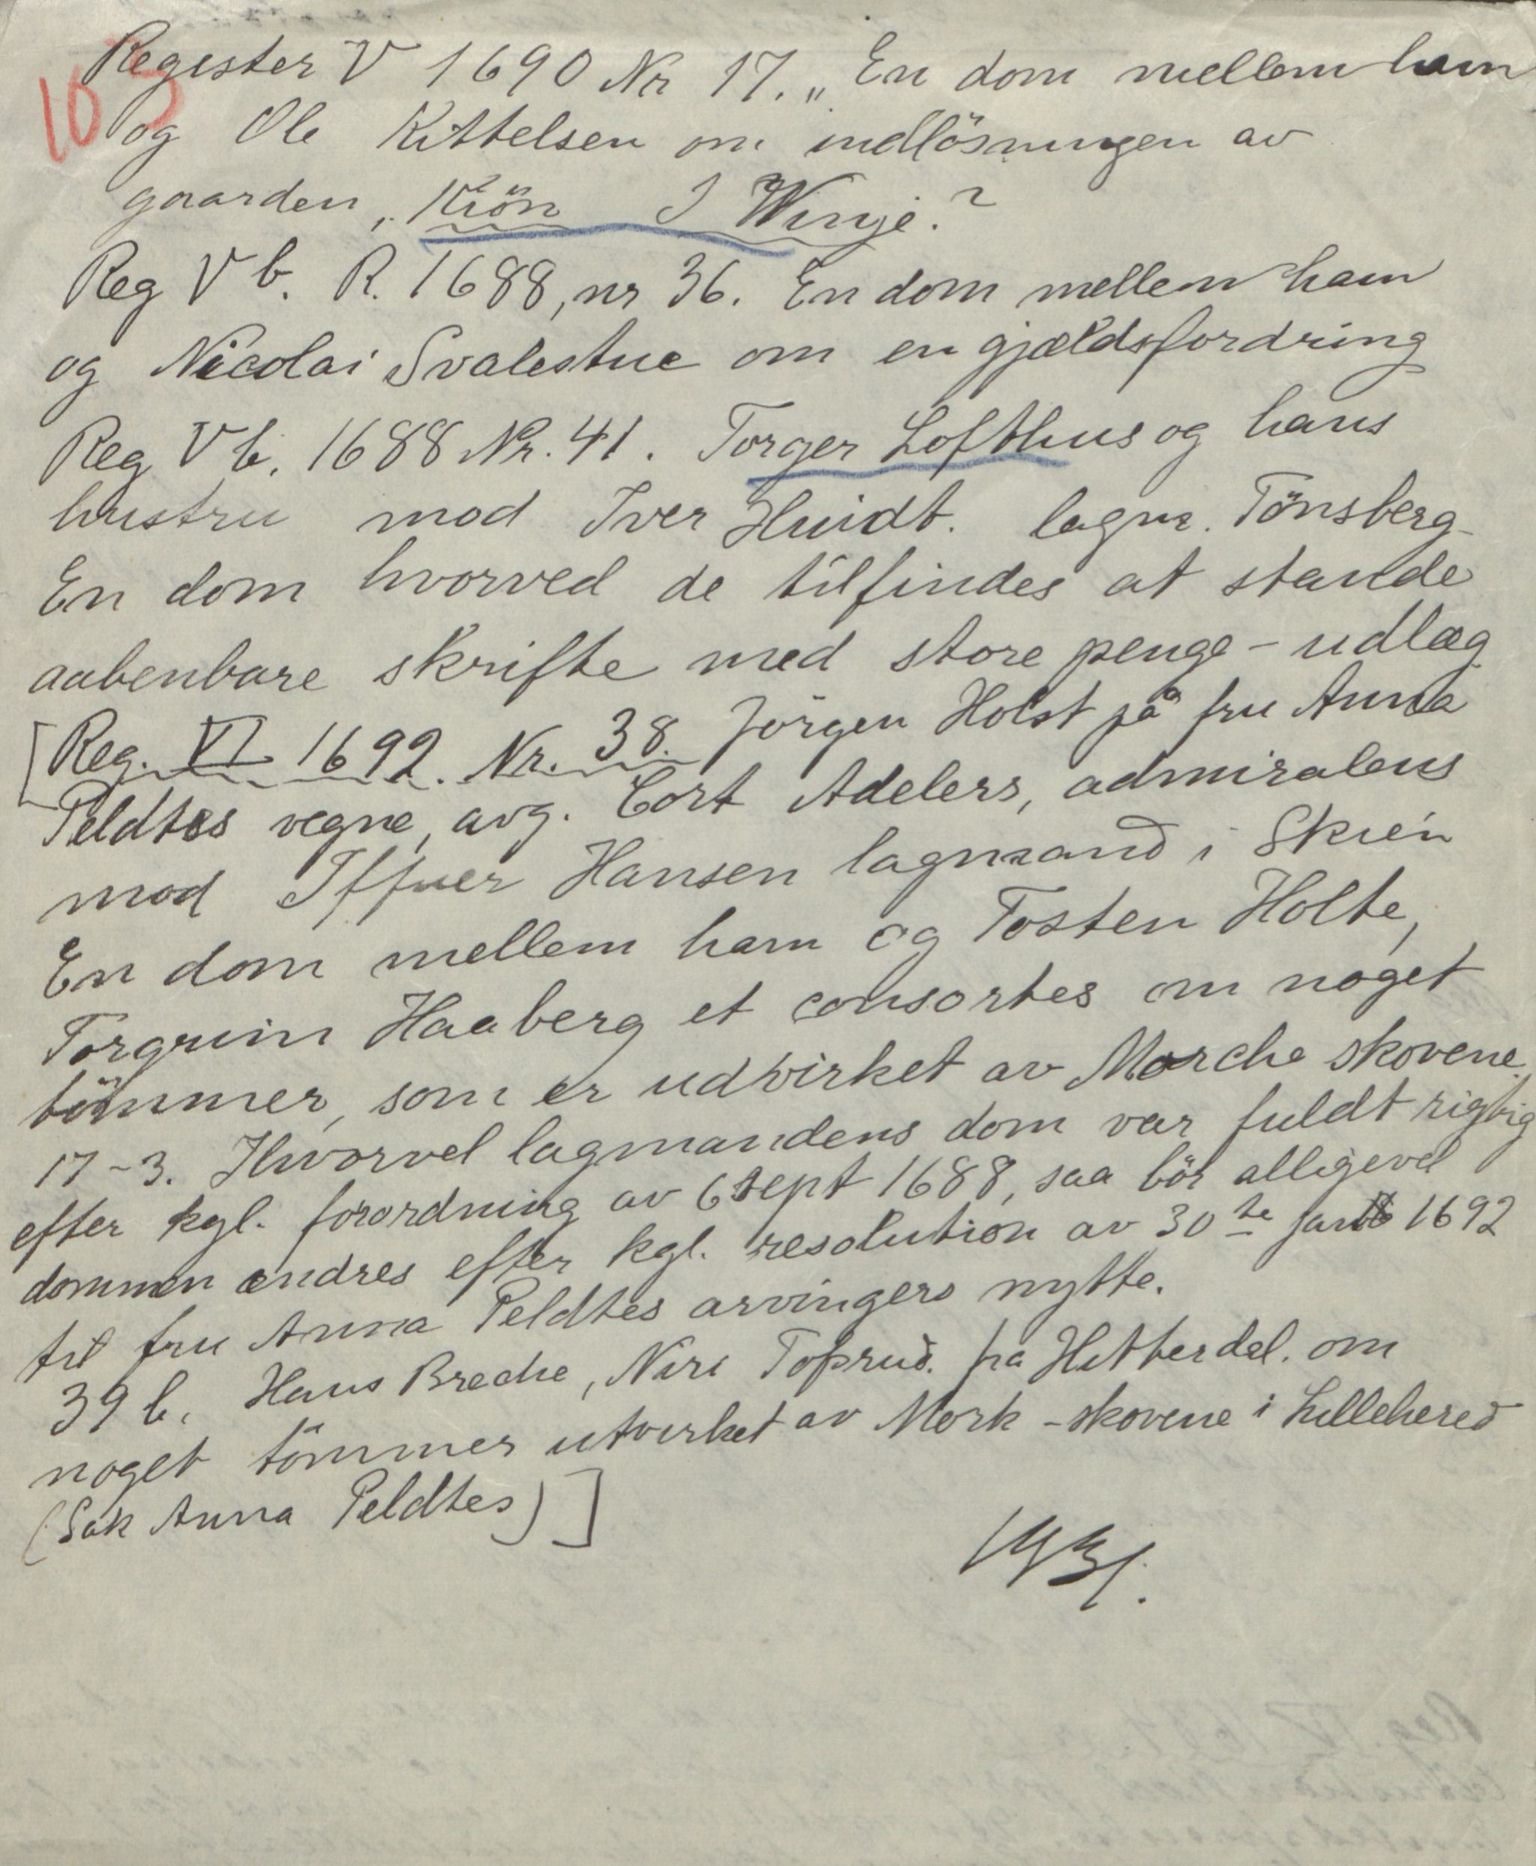 105
Register V 1690 Nr 17. „En dom mellem ham
og Ole Kittelsen om indlösningen av
gaarden „Kiön I Winje.?
Reg V b. R. 1688, nr 36. En dom mellem ham
og Nicolai Svalestue om en gjældsfordring
Reg V b. 1688 Nr. 41. Torger Lofthus og hans
hustru mod Iver Hvidt. lagm. Tönsberg
En dom hvorved de tilfindes at stande
aabenbare skrifte med store penge-udlæg
[Reg. VI 1692. Nr. 38. Jörgen Holst på fru Anna
Peldtes vegne, avg. Cort Adelers, admiralens
mod Iffuer Hansen lagmand i Skien
En dom mellem ham og Tosten Holte,
Torgrim Haaberg et consortes om noget
tömmer, som er udvirket av Marche skovene.
17-3. Hvorvel lagmandens dom var fuldt rigtig
efter kgl. forordning av 6 sept 1688, saa bör alligevel
dommen ændres efter kgl. resolution av 30te 1692
til fru Anna Peldtes arvingers nytte.
39 b. Hans Breche, Niri Tofsrud. fra Hitterdel. om
noget tömmer utvirket av Mork-skovene i Lilleherred
(Sak Anna Peldtes)]
1931.